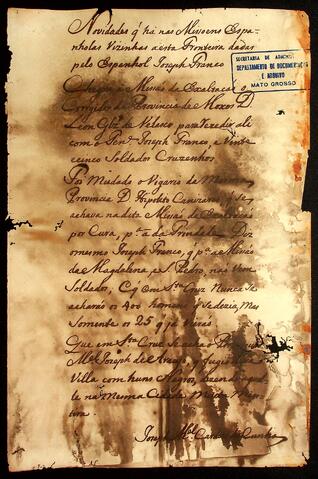 Novidades q̃ há nas Missoens Espa-
nholas Vizinhas aesta Fronteira dadas
pelo Espanhol Joseph Franco
SECRETARIA DE ADMINIS
DEPARTAMENTO DE DOCUMENTAÇÃ
E ARQUIVO
MATO GROSSO
Missão de Exaltacao o
da Provincia de Moxos D.
Leon Glz de Velasco, para rezedir ali
com o Joseph Franco, e vinte
cinco Soldados Cruzenhos.
Foi Mudado o Vigario da mesma
Provincia D. Hipolito Canizares, q̃ se
achava na dita Missão da Exaltacao
por Cura, pª a da Trindade. Diz
o mesmo Joseph Franco, q̃ pª as Missão
da Magdalena, e S. Pedro, nas vem
Soldados, e q̃ em Sta Cruz Nunca Se
acharão os 400 homens q̃ Se dezia, Mas
Somente os 25 q̃ já vierão
Que em Sta Cruz Se acha
Mel Joseph de q̃ fugio
Villa com huns Negros, dizendo
le na mesma
tira.
Joseph Mel da Cunha